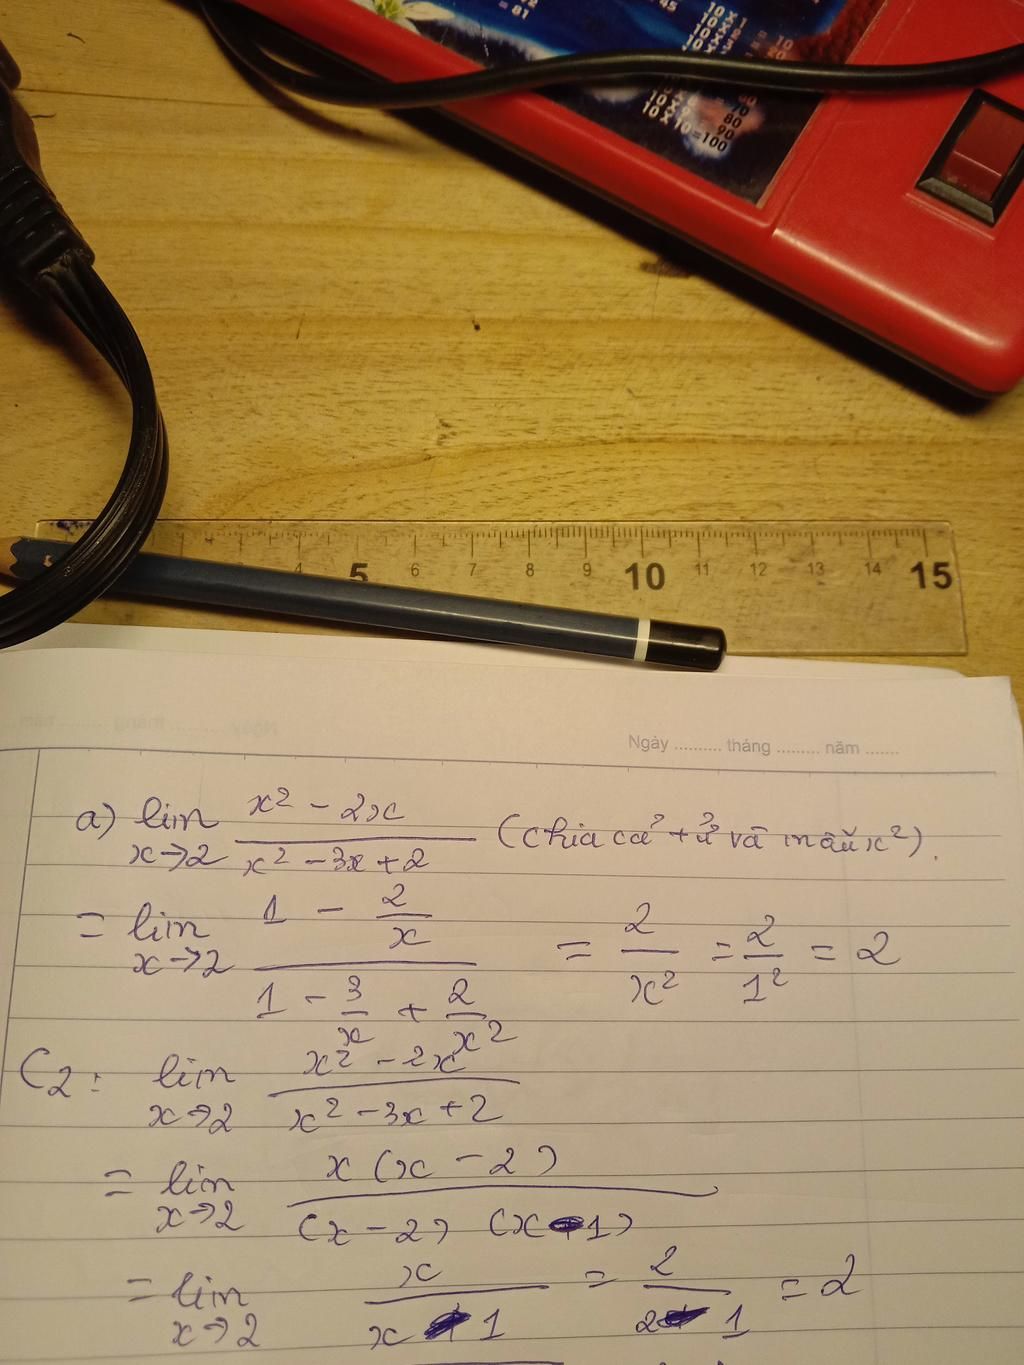 = 81
45
80
90
10 X 10 =100
4 5 6 7 8 9 10 11 12 13 14 15
Ngày .......... tháng ......... năm .......
a) lim x→2 (x² - 2x)/(x² - 3x + 2) (chia cả tử và mẫu x²).
= lim x→2 (1 - 2/x)/(1 - 3/x + 2/x²) = 2/x² = 2/1² = 2
C2: lim x→2 (x² - 2x)/(x² - 3x + 2)
= lim x→2 x(x - 2)/((x - 2)(x - 1))
= lim x→2 x/(x - 1) = 2/(2 - 1) = 2